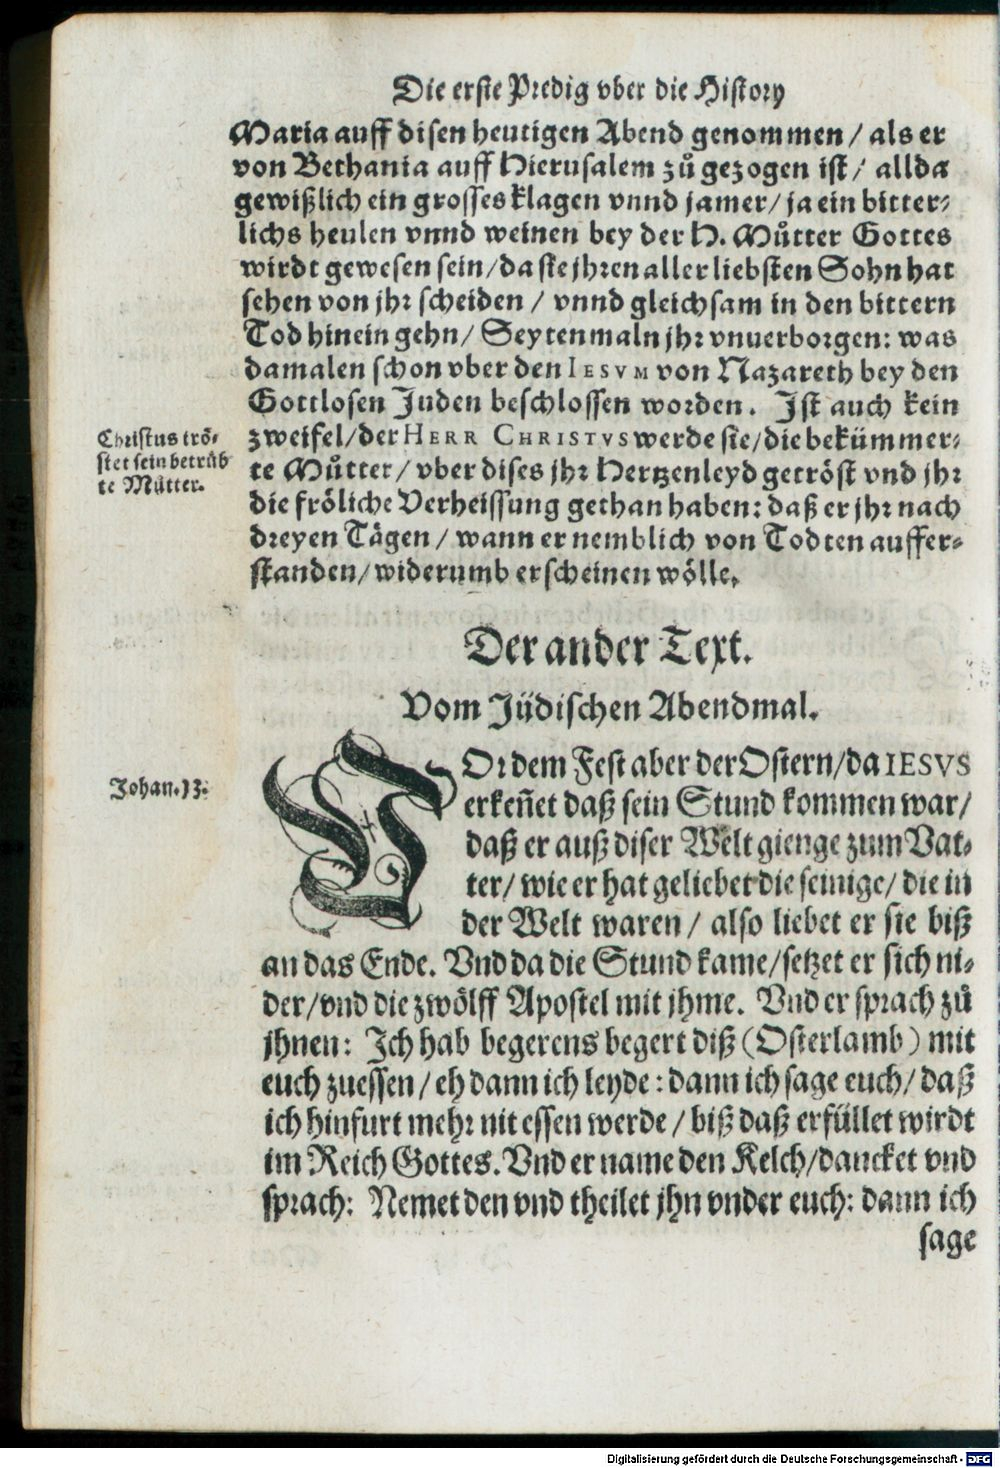 Die erste Predig vber die History
Maria auff disen heutigen Abend genommen / als er
von Bethania auff Hierusalem zů gezogen ist / allda
gewißlich ein grosses klagen vnnd jamer / ja ein bitter-
lichs heulen vnnd weinen bey der H. Můtter Gottes
wirdt gewesen sein / da sie jhren aller liebsten Sohn hat
sehen von jhr scheiden / vnnd gleichsam in den bittern
Tod hinein gehn / Seytenmaln jhr vnuerborgen: was
damalen schon vber den IESVM von Nazareth bey den
Gottlosen Juden beschlossen worden. Jst auch kein
zweifel / der HERR CHRISTVS werde sie / die bekümmer-
te Můtter / vber dises jhr Hertzenleyd getröst vnd jhr
die fröliche Verheissung gethan haben: daß er jhr nach
dreyen Tägen / wann er nemblich von Todten auffer-
standen / widerumb erscheinen wölle.
Christus trö-
stet sein betrüb
te Můtter.
Der ander Text.
Vom Jüdischen Abendmal.
Johan. 13.
VOr dem Fest aber der Ostern / da IESVS
erkeñet daß sein Stund kommen war /
daß er auß diser Welt gienge zum Vat-
ter / wie er hat geliebet die seinige / die in
der Welt waren / also liebet er sie biß
an das Ende. Vnd da die Stund kame / setzet er sich ni-
der / vnd die zwölff Apostel mit jhme. Vnd er sprach zů
jhnen: Jch hab begerens begert diß (Osterlamb) mit
euch zuessen / eh dann ich leyde: dann ich sage euch / daß
ich hinfurt mehr nit essen werde / biß daß erfüllet wirdt
im Reich Gottes. Vnd er name den Kelch / dancket vnd
sprach: Nemet den vnd theilet jhn vnder euch: dann ich
sage
Digitalisierung gefördert durch die Deutsche Forschungsgemeinschaft - DFG